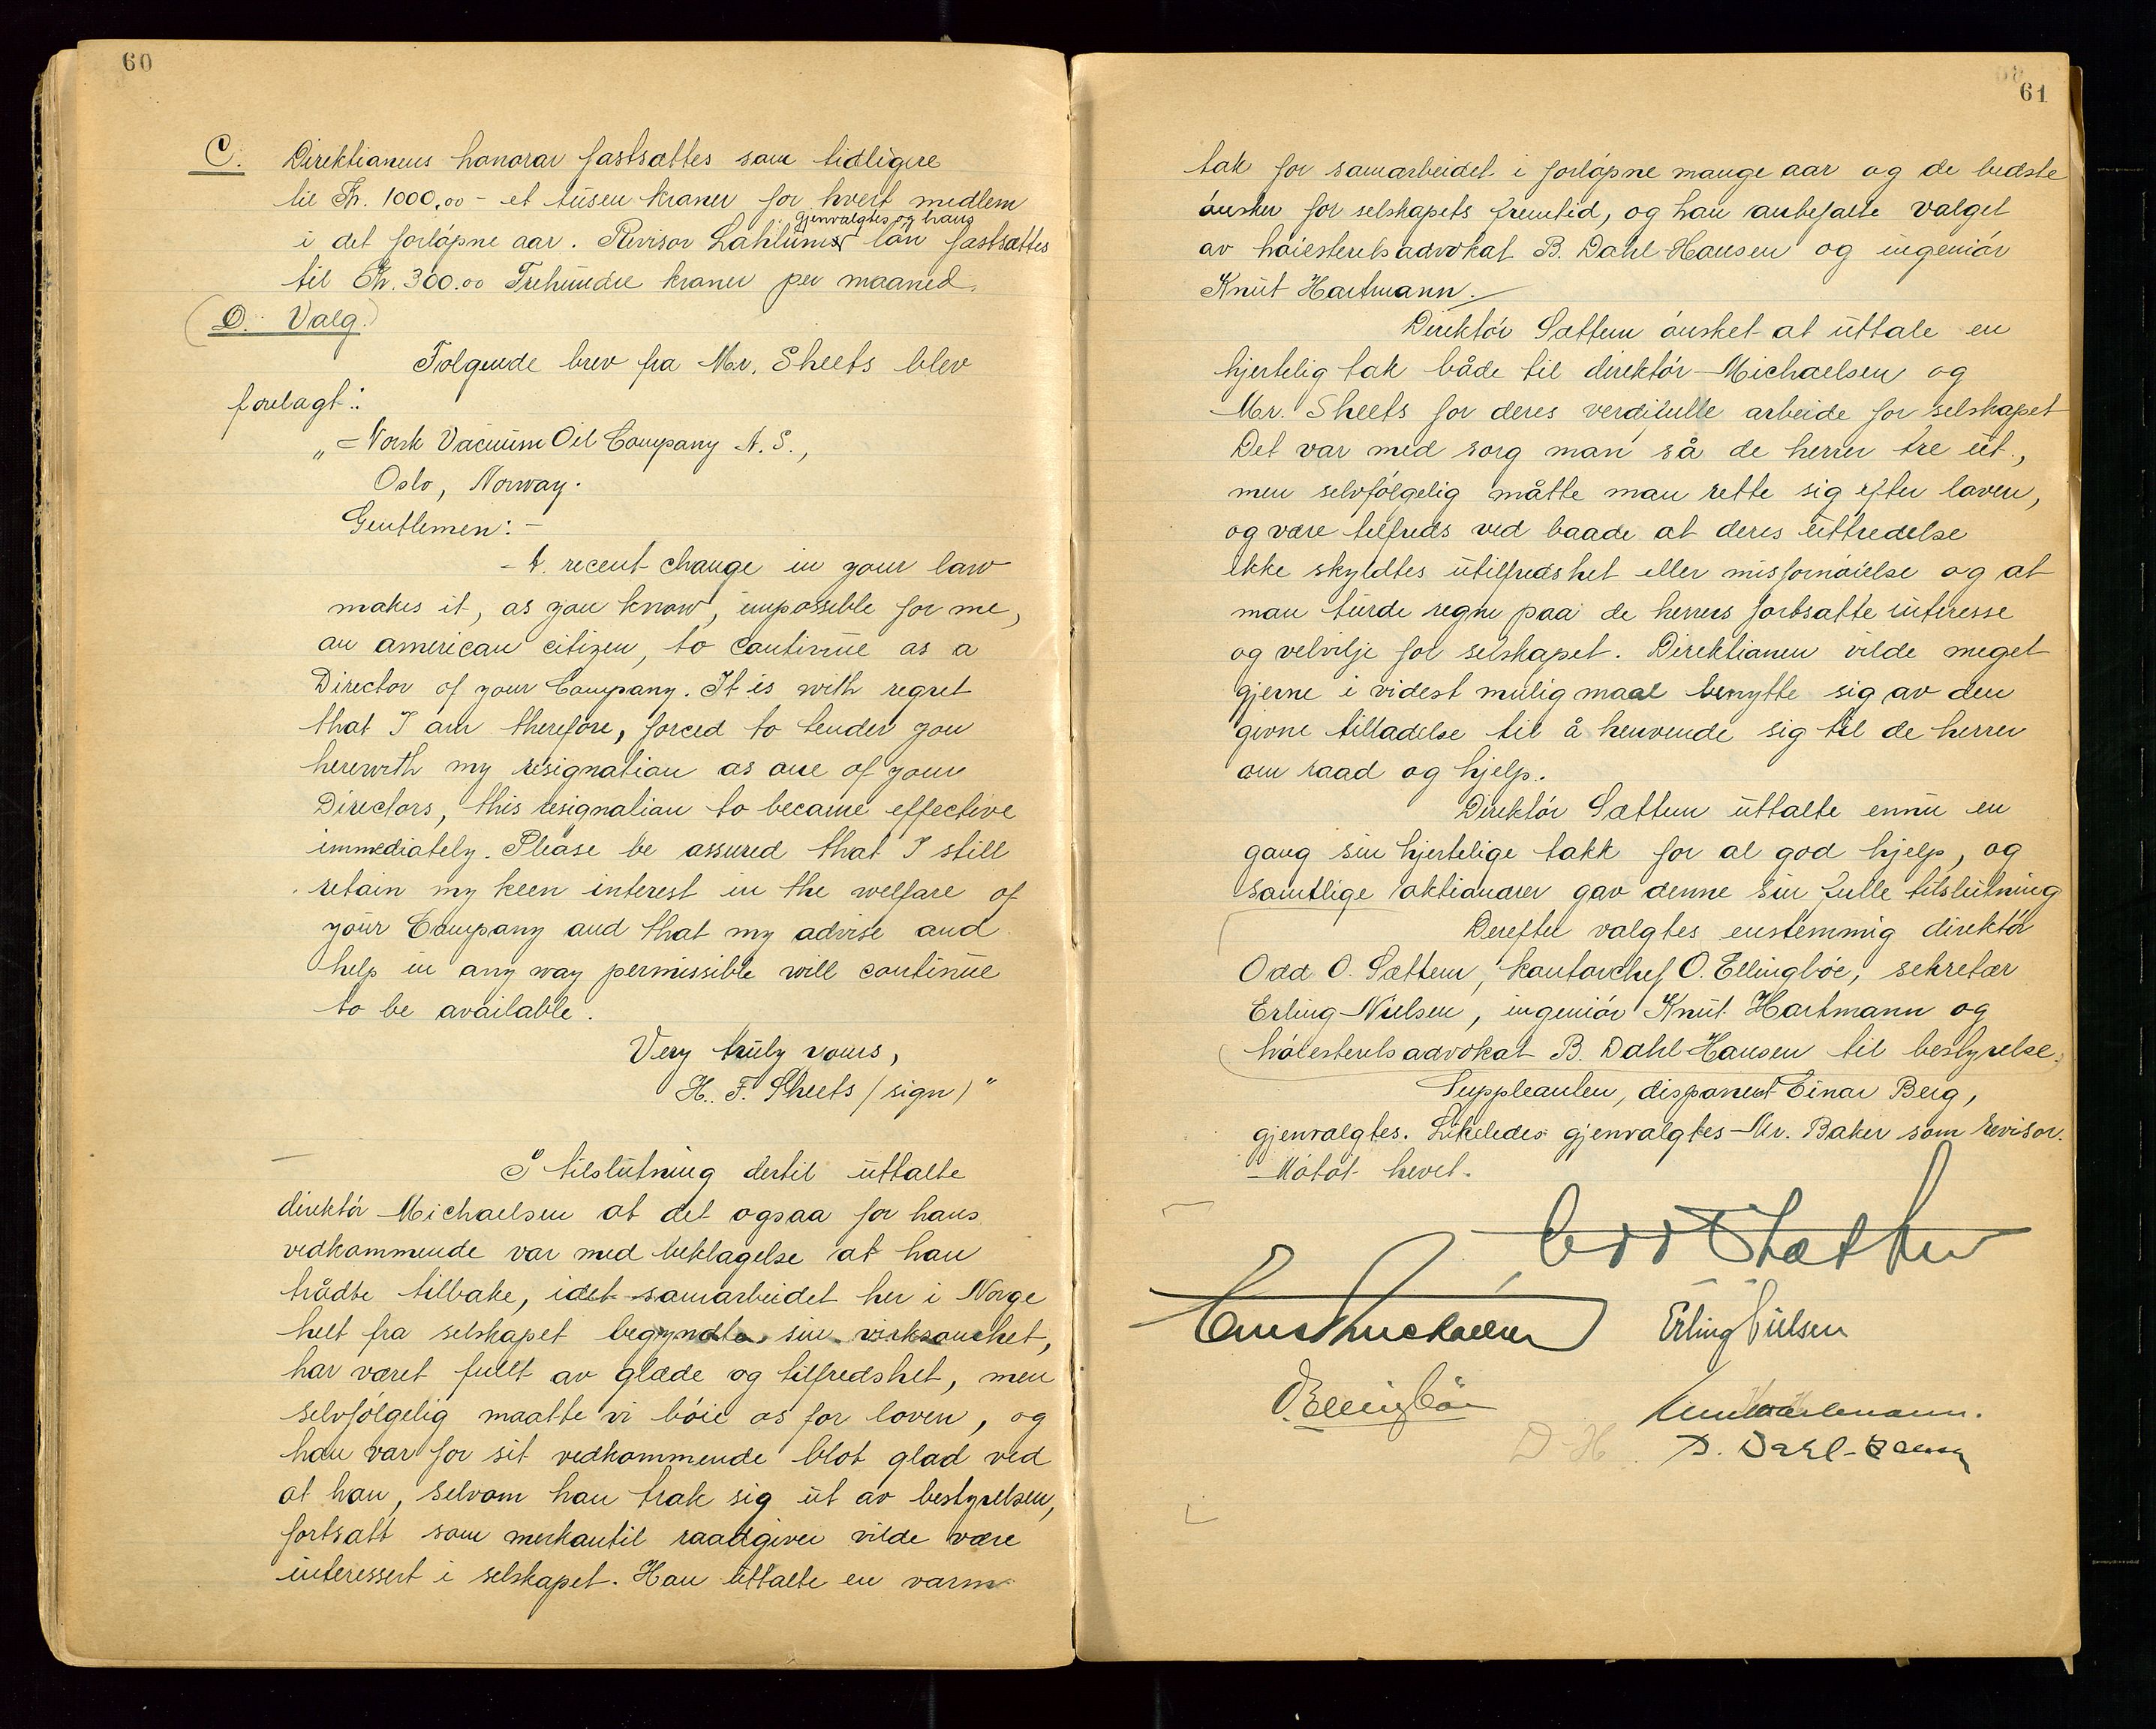 60
C. Direktionens honorar fastsættes som tidligere
til Kr. 1000,00 - et tusen kroner for hvert medlem
gjenvalgtes og hans
i det forløpne aar. Revisor Lahlums løn fastsættes
til Kr. 300.00 Trehundre kroner per maaned.
D. Valg.
Følgende brev fra Mr. Sheets blev
forelagt:
„Norsk Vacuum Oil Company A. S.,
Oslo, Norway.
Gentlemen: -
A recent change in your law
makes it, as you know, impossible for me,
an american citizen, to continue as a
Director of your Company. It is with regret
that I am therefore, forced to tender you
herewith my resignation as one of your
Directors, this resignation to become effective
immediately. Please be assured that I still
retain my keen interest in the welfare of
your Company and that my advise and
help in any way permissible will continue
to be available.
Very truly yours,
H. F. Sheets /sign)"
I tilslutning dertil uttalte
direktør Michaelsen at det ogsaa for hans
vedkommende var med beklagelse at han
trådte tilbake, idet samarbeidet her i Norge
helt fra selskapet begyndte sin virksomhet,
har været fullt av glæde og tilfredshet, men
selvfølgelig maatte vi bøie os for loven, og
han var for sit vedkommende blot glad ved
at han, selvom han trak sig ut av bestyrelsen,
fortsatt som merkantil raadgiver vilde være
interessert i selskapet. Han uttalte en varm
61
tak for samarbeidet i forløpne mange aar og de bedste
ønsker for selskapets fremtid, og han anbefalte valget
av høiesteretsadvokat B. Dahl-Hansen og ingeniør
Knut Hartmann.
Direktør Sættem ønsket at uttale en
hjertelig tak både til direktør Michaelsen og
Mr. Sheets for deres verdifulle arbeide for selskapet
Det var med sorg man så de herrer tre ut,
men selvfølgelig måtte man rette sig efter loven,
og være tilfreds ved baade at deres uttredelse
ikke skyldtes utilfredshet eller misfornøielse og at
man turde regne paa de herrers fortsatte interesse
og velvilje for selskapet. Direktionen vilde meget
gjerne i videst mulig maal benytte sig av den
givne tilladelse til å henvende sig til de herrer
om raad og hjelp.
Direktør Sættem uttalte ennu en
gang sin hjertelige takk for al god hjelp, og
samtlige aktionærer gav denne sin fulle tilslutning
Derefter valgtes enstemmig direktør
Odd O. Sættem, kontorchef O. Ellingbøe, sekretær
Erling Nielsen, ingeniør Knut Hartmann og
høiesteretsadvokat B. Dahl-Hansen til bestyrelse.
Suppleanten, disponent Einar Berg,
gjenvalgtes. Likeledes gjenvalgtes Mr. Baker som revisor.
Møtet hevet.
Odd Sættem
Erling Nielsen
O. Ellingbøe
Knut Hartmann.
D-H B. Dahl-Hansen